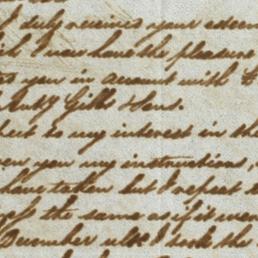 I duly received your esteem
I now have the pleasure
you in account with
Gibbs &
to my interest in the
you my instructions,
have taken but I repeat
the same as if it were
December ulto I took the